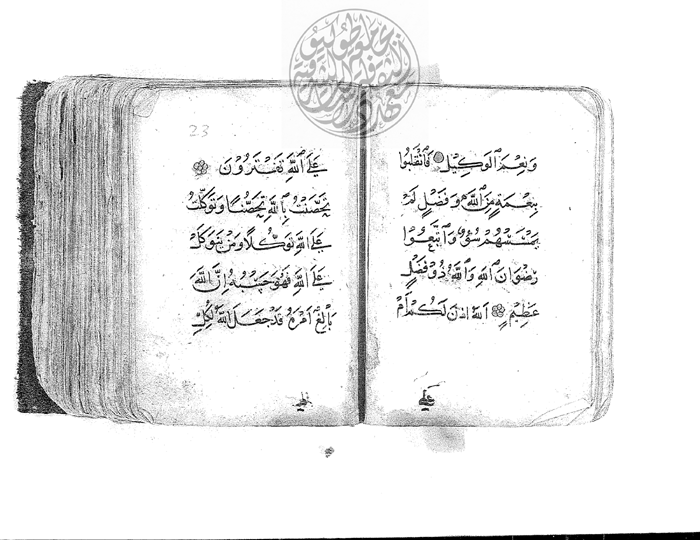 وَنِعْمَ الْوَكِيْل فَانْقَلَبُوا
بِنِعْمَةٍ مِنَ اللّٰهِ وَفَضْلٍ لَمْ
يَمْسَسْهُمْ سُوْءٌ وَاتَّبَعُوا
رِضْوَانَ اللّٰهِ وَاللّٰهُ ذُوْ فَضْلٍ
عَظِيْمٍ اَللّٰهُ اَذِنَ لَكُمْ اَمْ
عَلَى
23
عَلَى اللّٰهِ تَفْتَرُوْنَ
تَحَصَّنْتُ بِاللّٰهِ تَحَصُّنًا وَتَوَكَّلْتُ
عَلَى اللّٰهِ تَوَكُّلًا وَمَنْ يَتَوَكَّلْ
عَلَى اللّٰهِ فَهُوَ حَسْبُهُ اِنَّ اللّٰهَ
بَالِغُ اَمْرِهِ قَدْ جَعَلَ اللّٰهُ لِكُلِّ